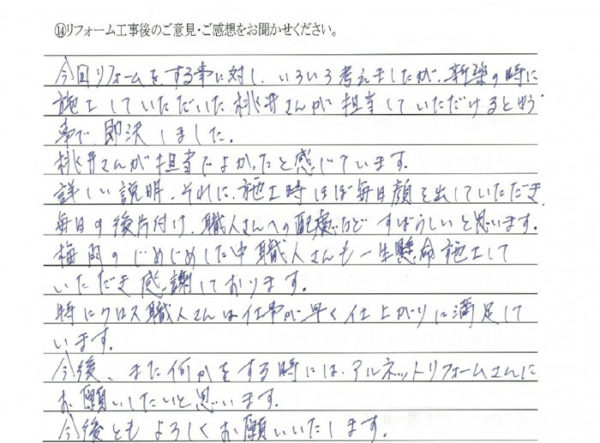 ⑭リフォーム工事後のご意見・ご感想をお聞かせください。
今回リフォームをする事に対し、いろいろ考えましたが、新築の時に
施工していただいた桃井さんが担当していただけるという
事で即決しました。
桃井さんが担当でよかったと感じています。
詳しい説明、それに、施工時ほぼ毎日顔を出していただき
毎日の後片付け、職人さんへの配慮などすばらしいと思います。
梅雨のじめじめした中職人さんも一生懸命施工して
いただき感謝しております。
特にクロス職人さんは仕事が早く仕上がりに満足して
います。
今後、また何かをする時には、アルネットリフォームさんに
お願いしたいと思います。
今後ともよろしくお願いいたします。